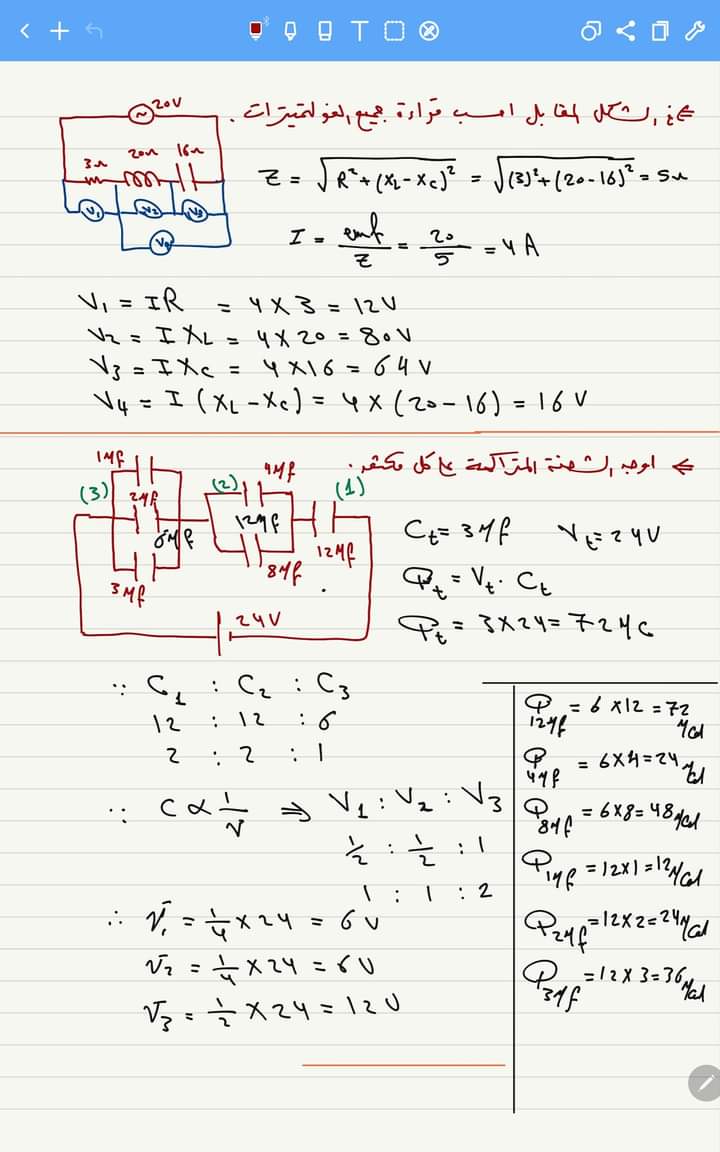 في الشكل المقابل احسب قراءة جميع الفولتميترات .
20V
3Ω 20Ω 16Ω
V1 V2 V3
V4
Z = √R² + (XL - XC)² = √(3)² + (20 - 16)² = 5Ω
I = emf/Z = 20/5 = 4A
V1 = IR = 4 × 3 = 12V
V2 = I XL = 4 × 20 = 80V
V3 = I XC = 4 × 16 = 64V
V4 = I (XL - XC) = 4 × (20 - 16) = 16V
اوجد الشحنة المتراكمة على كل مكثف .
1μf
(3) 2μf 6μf
3μf
(2) 4μf
12μf
8μf
(1)
12μf
24V
Ct = 3μf Vt = 24V
Qt = Vt · Ct
Qt = 3 × 24 = 72μC
∵ C1 : C2 : C3
12 : 12 : 6
2 : 2 : 1
∵ C ∝ 1/V ⇒ V1 : V2 : V3
1/2 : 1/2 : 1
1 : 1 : 2
∴ V1 = 1/4 × 24 = 6V
V2 = 1/4 × 24 = 6V
V3 = 1/2 × 24 = 12V
Q12μf = 6 × 12 = 72 μCol
Q4μf = 6×4 = 24 μCol
Q8μf = 6×8 = 48 μCol
Q1μf = 12×1 = 12 μCol
Q2μf = 12×2 = 24 μCol
Q3μf = 12×3 = 36 μCol